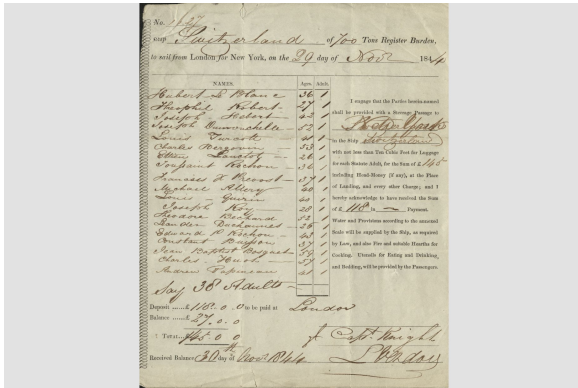 No.
SHIP Switzerland of 700 Tons Register Burden,
to sail from London for New York, on the 29 day of Novr 1844
NAMES. Ages. Adult.
Hubert Le Blanc 36 1
Theophil Robert 27 1
Joseph Hebert 42 1
Joseph 52 1
Louis 41 1
Charles Bergevin 53 1
Etienne Langlois 26 1
Toussaint Rochon 36 1
Francois X Prevost 37 1
Mychael Allery 40 1
Louis Guerin 41 1
Joseph Roy 28 1
Theodore Bechard 52
Leandre Ducharme 26 1
Edward P Rochon 43 1
Constant Buisson 37 1
Jean Baptist Bousquet 54 1
Charles Huot 57 1
Andrew Papineau 41 1
Say 38 Adults
I engage that the Parties herein-named
shall be provided with a Steerage Passage to
in the Ship Switzerland
with not less than Ten Cubic Feet for Luggage
for each Statute Adult, for the Sum of £ 145
including Head-Money (if any), at the Place
of Landing, and every other Charge; and I
hereby acknowledge to have received the Sum
of £ 118 in Payment.
Water and Provisions according to the annexed
Scale will be supplied by the Ship, as required
by Law, and also Fire and suitable Hearths for
Cooking. Utensils for Eating and Drinking,
and Bedding, will be provided by the Passengers.
Deposit £ 118. 0. 0 to be paid at London
Balance £ 27. 0. 0
Total 145 0 0
Capt. Knight
Received Balance 30th day of Novr 1844